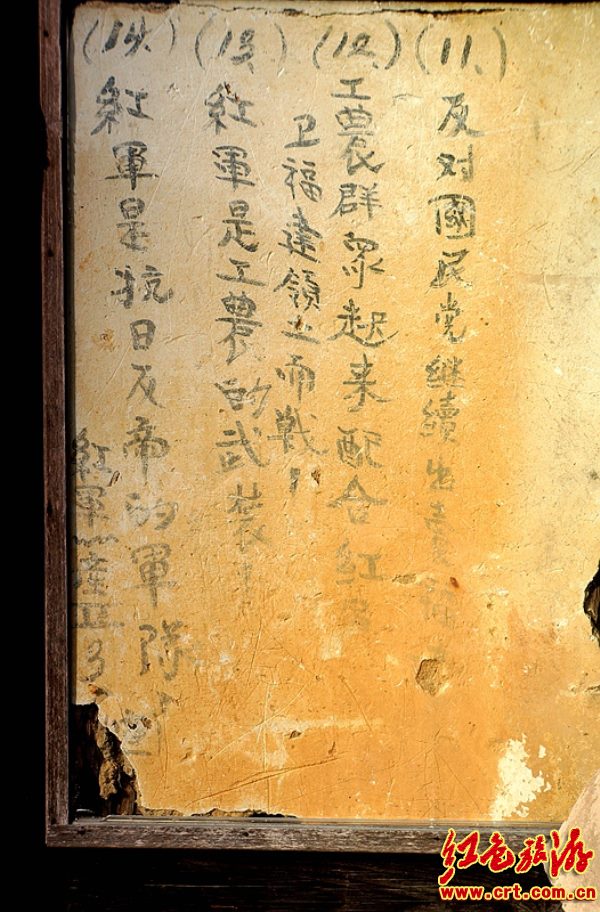 (11、)
反对國民党继續出卖
(12、)
工農群眾起来配合紅
卫福建領土而戰！
(13、)
紅軍是工農的武裝！
(14、)
紅軍是抗日反帝的軍隊！
紅軍
红色旅游
www.crt.com.cn